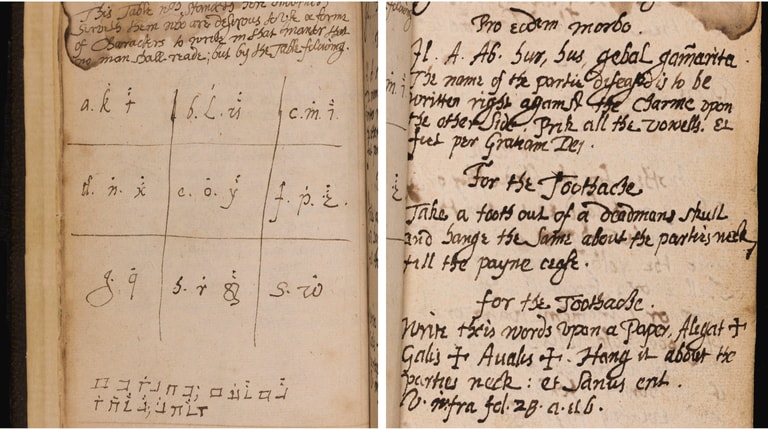 This Table now standeth
Serveth them who are desirous to use a forme
of Characters to write in that manner that
no man shall reade; but by the Table folowing.
a. k t
b. L. u
c. m. i
d. n. x
e. o. y
f. p. z.
g. q
h. r &
S. w
Pro eodem morbo.
A. Ab. hur, hus, gebal gamarita
The name of the partie diseased is to be
written right against the charme upon
the other side. Prik all the vowells. et
fiet per Graham Dei.
For the Toothache
Take a tooth out of a deadmans skull
and hange the same about the parties neck,
till the payne cease.
for the Toothache.
Write theis words upon a Paper, Alegat ✝
Galis ✝ Aualis ✝. Hang it about the
parties neck : et Sanus erit.
V. infra fol. 28. a. et b.